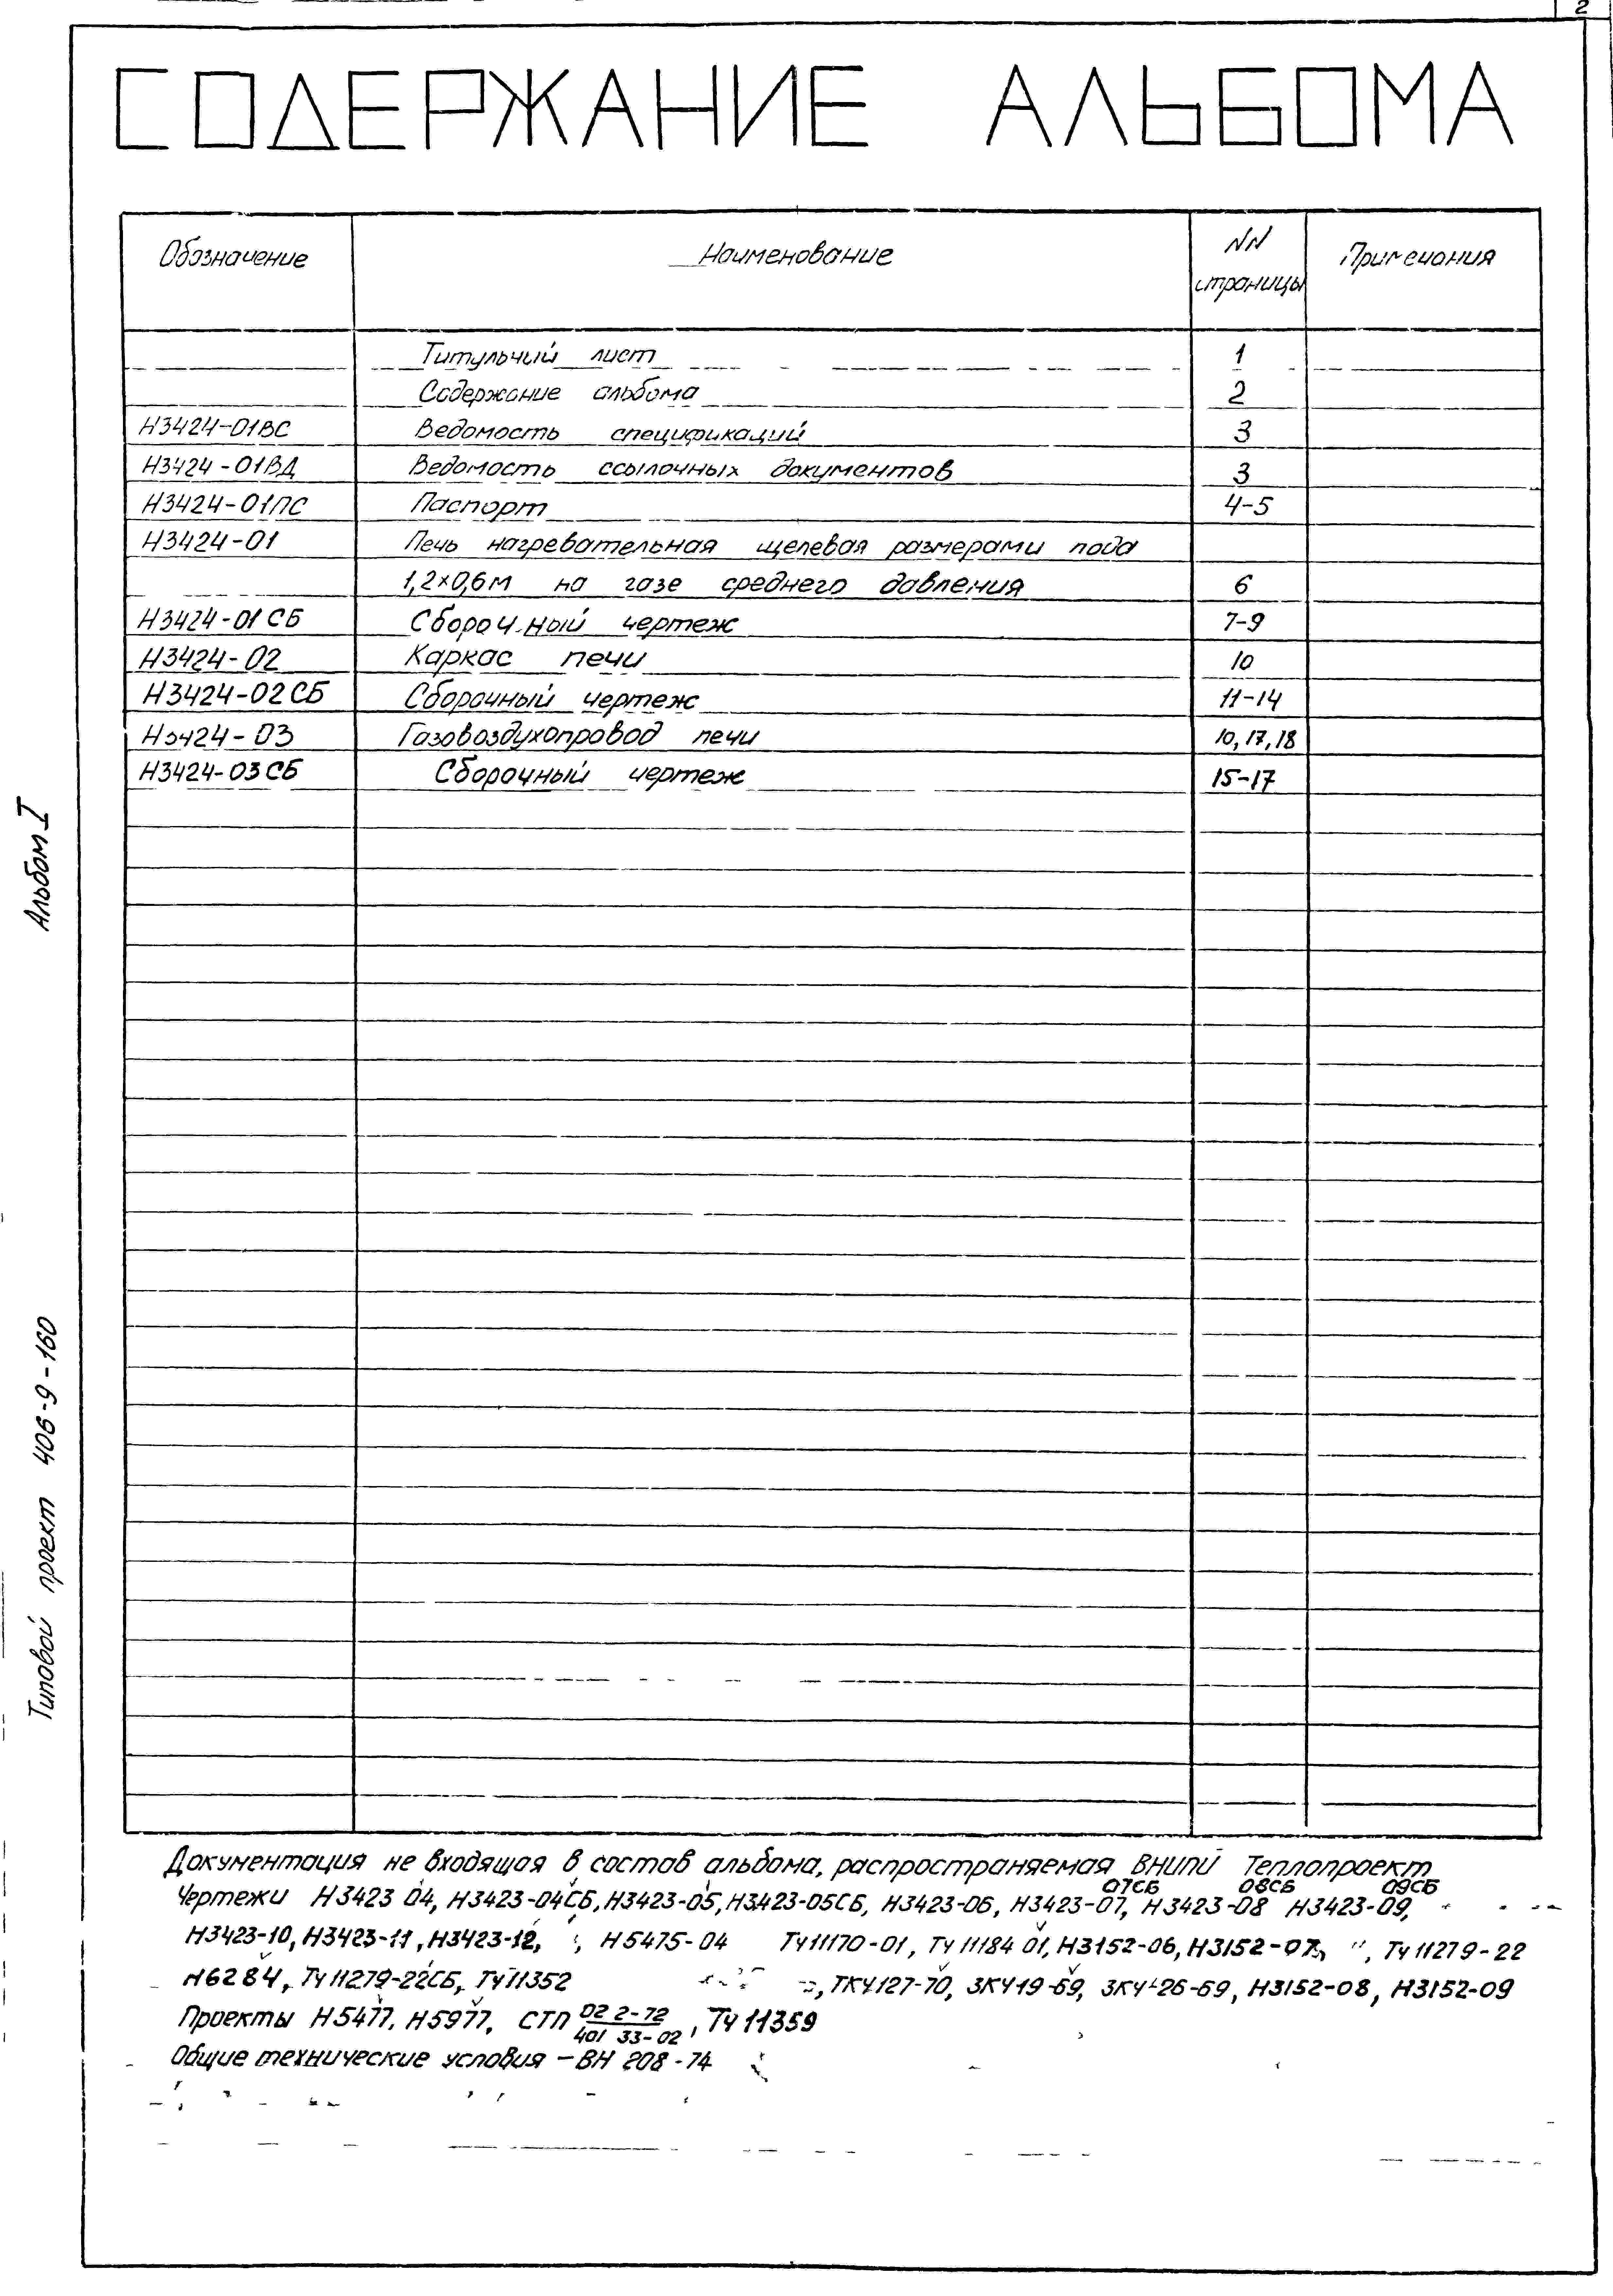 2
СОДЕРЖАНИЕ АЛЬБОМА
Обозначение Наименование NN страницы Примечания
Титульный лист 1
Содержание альбома 2
Н3424-01ВС Ведомость спецификаций 3
Н3424-01ВД Ведомость ссылочных документов 3
Н3424-01ПС Паспорт 4-5
Н3424-01 Печь нагревательная щелевая размерами пода
1,2×0,6м на газе среднего давления 6
Н3424-01СБ Сборочный чертеж 7-9
Н3424-02 Каркас печи 10
Н3424-02СБ Сборочный чертеж 11-14
Н3424-03 Газовоздухопровод печи 10,17,18
Н3424-03СБ Сборочный чертеж 15-17
Альбом I
Типовой проект 406-9-160
Документация не входящая в состав альбома, распространяемая ВНИПИ Теплопроект
07СБ 08СБ 09СБ
Чертежи Н3423 04, Н3423-04СБ, Н3423-05, Н3423-05СБ, Н3423-06, Н3423-07, Н3423-08 Н3423-09,
Н3423-10, Н3423-11, Н3423-12, Н5475-04 ТЧ11170-01, ТЧ11184 01, Н3152-06, Н3152-07, ТЧ11279-22
Н6284, ТЧ11279-22СБ, ТЧ11352 ТКЧ127-70, ЗКЧ19-69, ЗКЧ-26-69, Н3152-08, Н3152-09
Проекты Н5477, Н5977, СТП 02 2-72 / 401 33-02, ТЧ11359
Общие технические условия - ВН 208-74